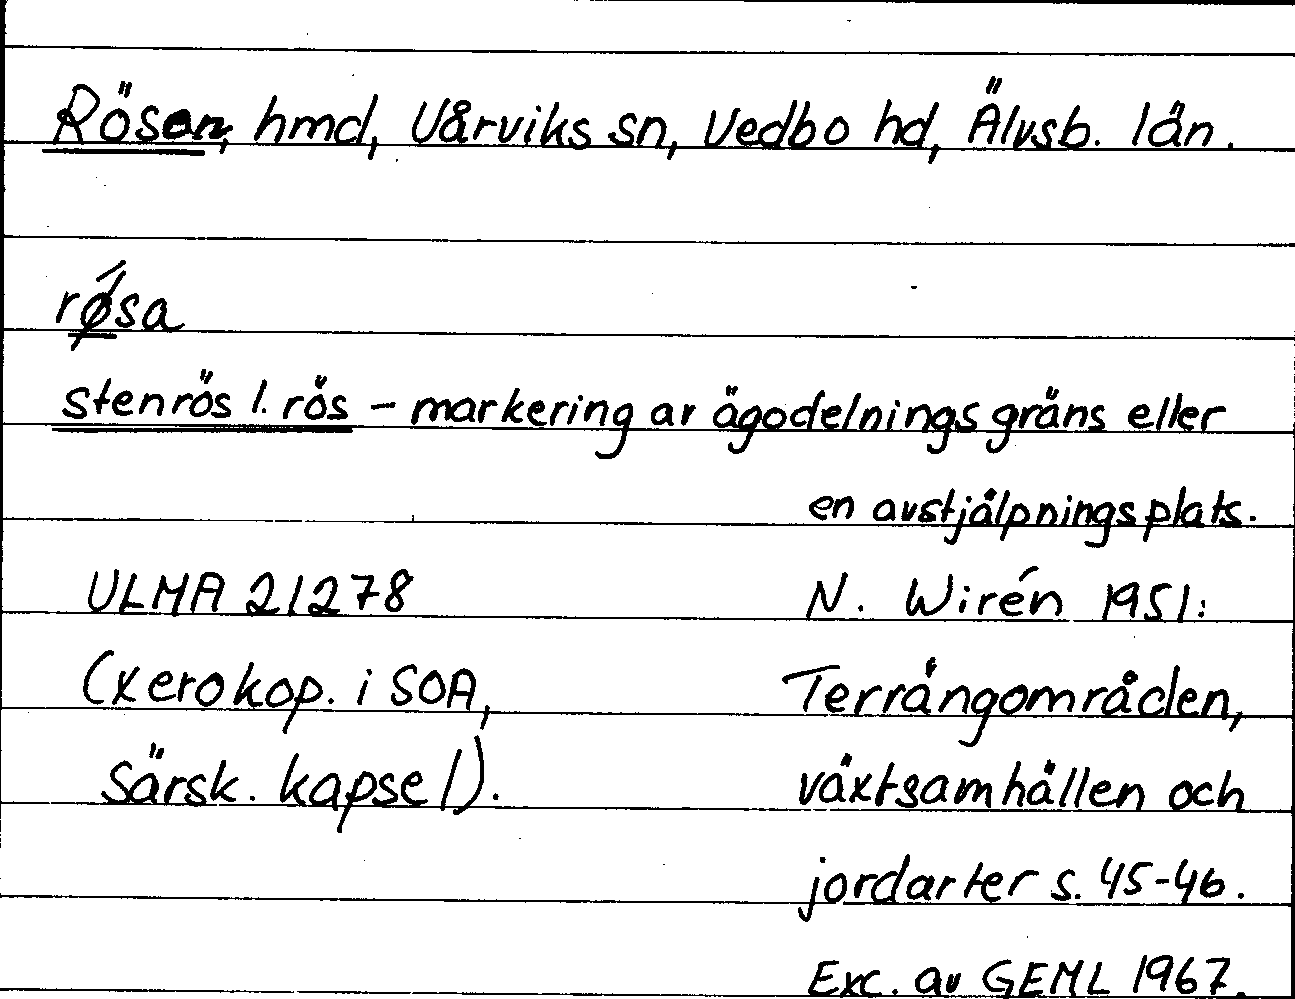 Rösen, hmd, Vårviks sn, Vedbo hd, Älvsb. län.
rǿsa
stenrös l. rös - markering av ägodelningsgräns eller
en avstjälpningsplats.
ULMA 21278 N. Wirén 1951:
(xerokop. i SOA, Terrängområden,
särsk. kapsel). växtsamhällen och
jordarter s. 45-46.
Exc. av GEML 1967.